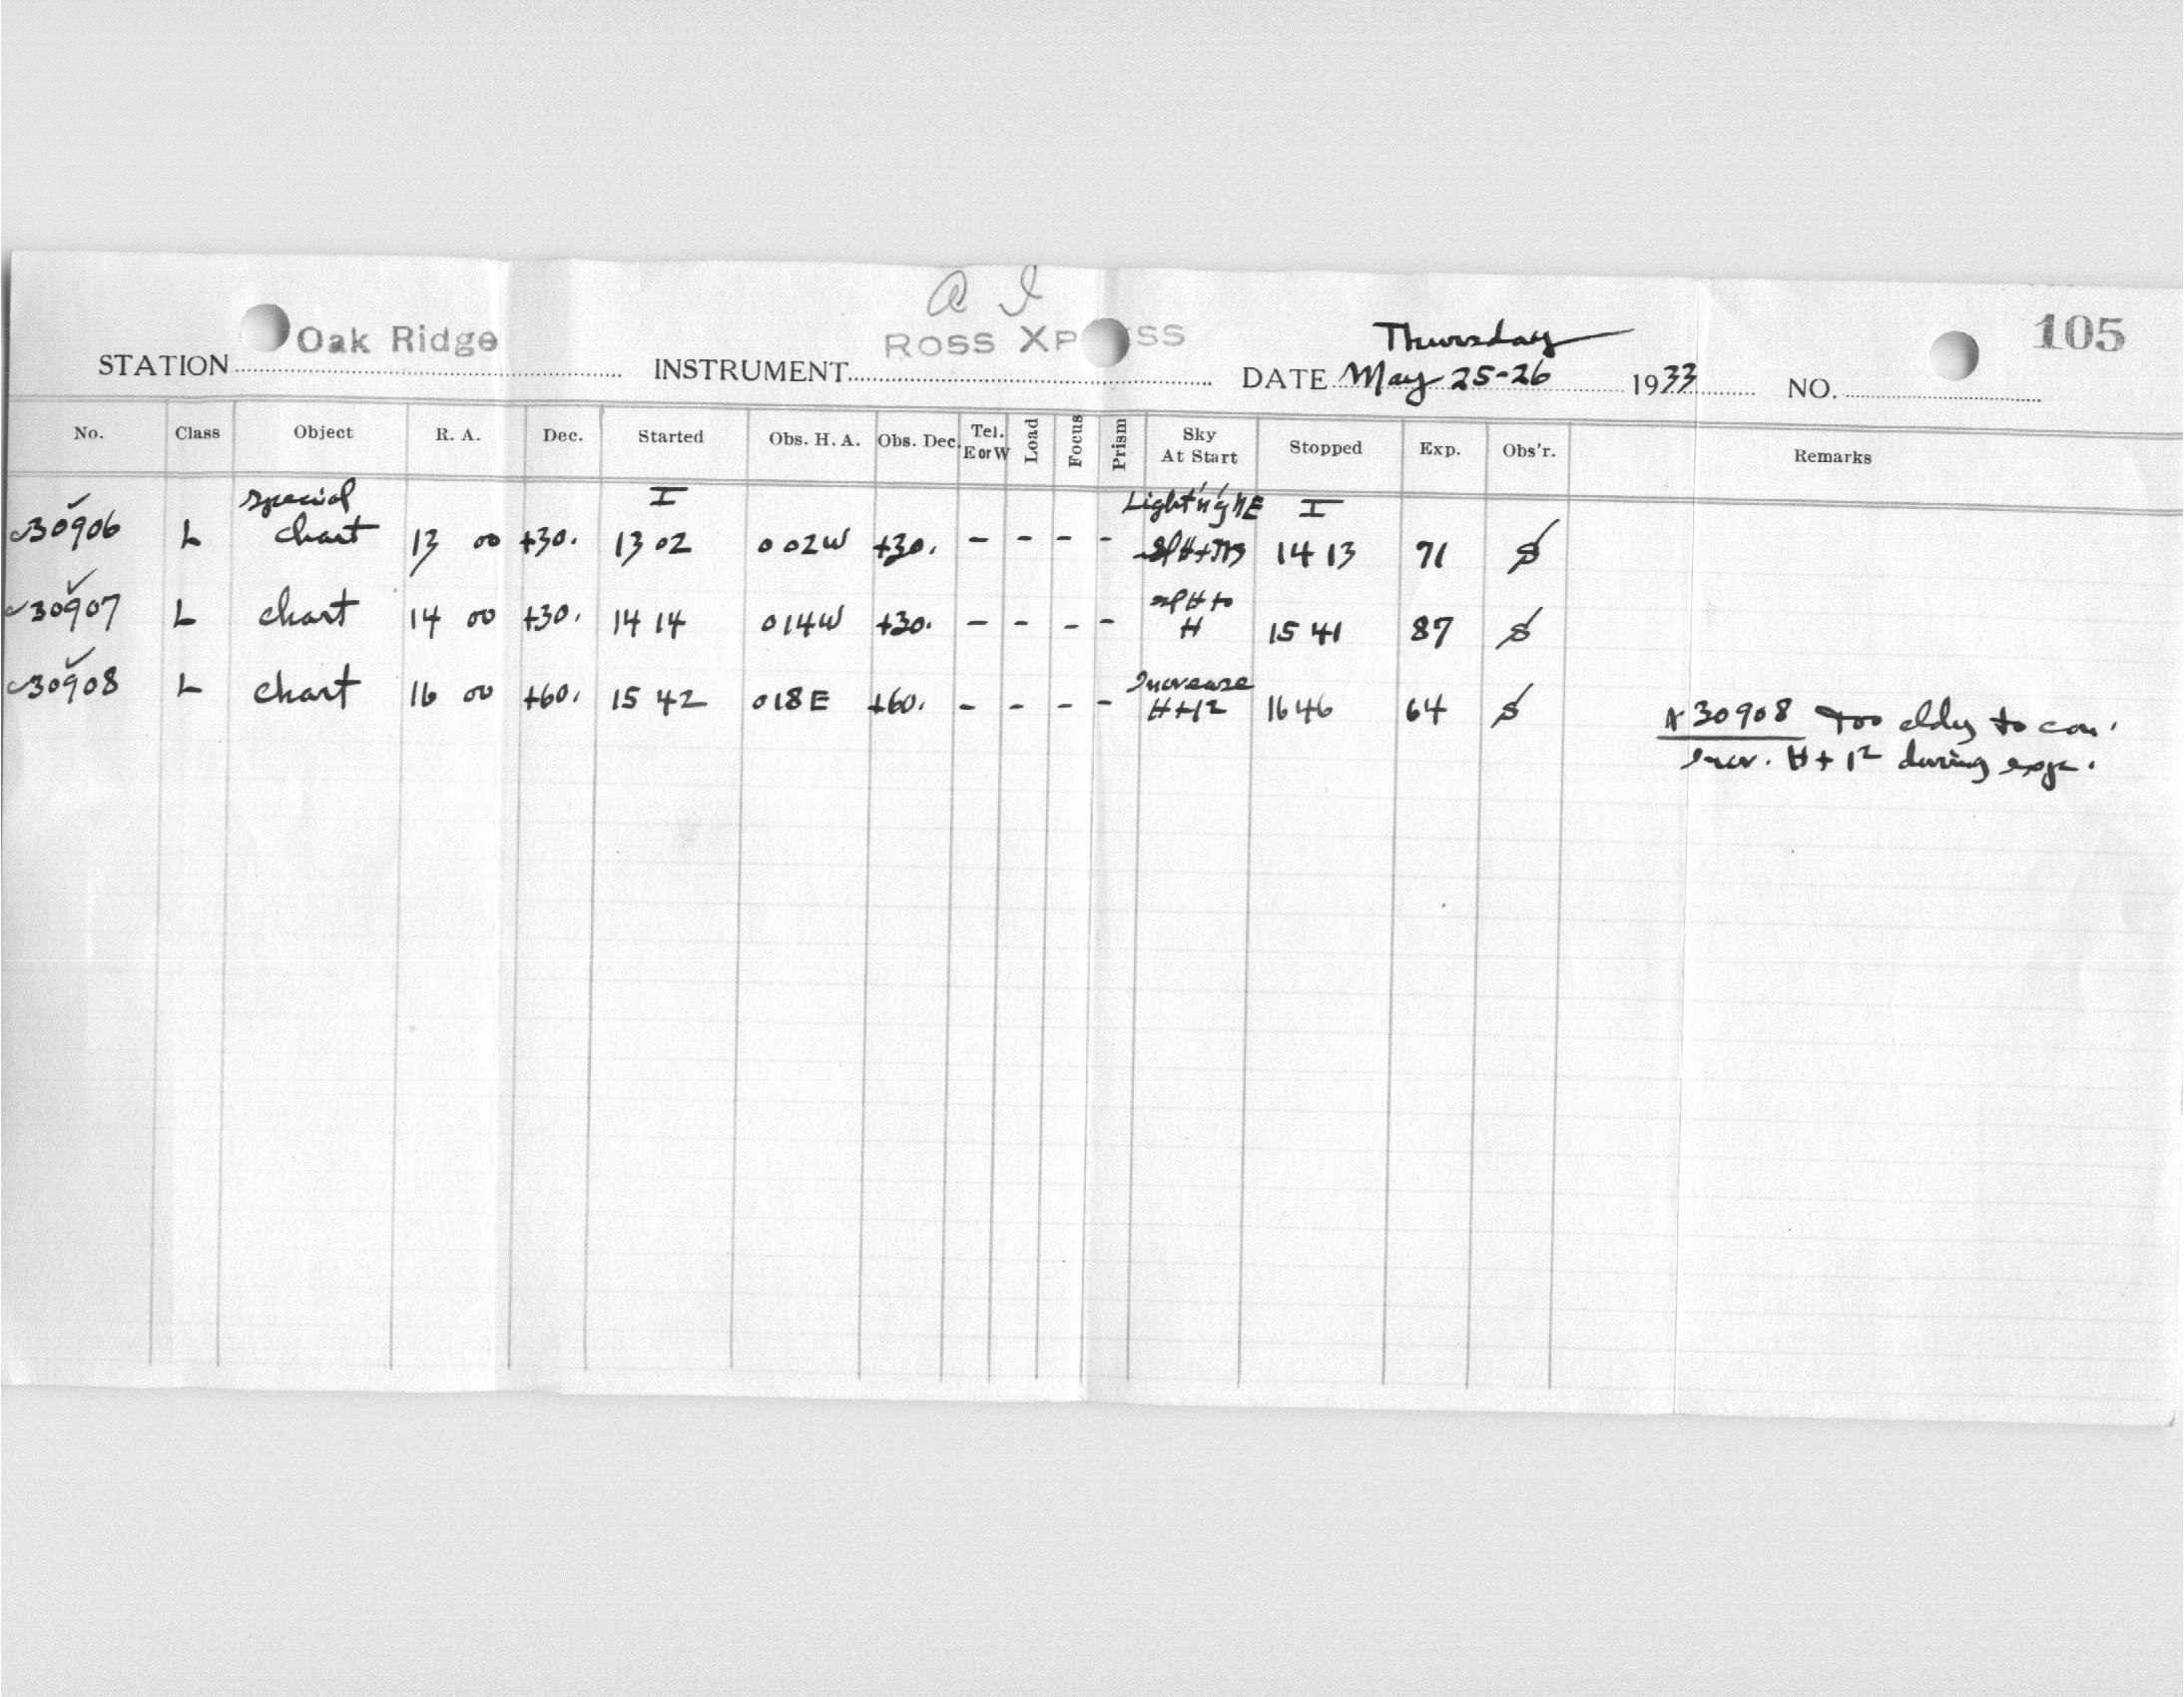 a I
Oak Ridge ROSS XP SS Thursday 105
STATION INSTRUMENT DATE May 25-26 1933 NO.
No. Class Object R. A. Dec. Started Obs. H. A. Obs. Dec. Tel. E or W Load Focus Prism Sky At Start Stopped Exp. Obs'r. Remarks
special I Light'n'g NE I
30906 L chart 13 00 +30. 13 02 0 02W +30. - - - - 14 13 71 S
sl H to
30907 L chart 14 00 +30. 14 14 0 14W +30. - - - - H 15 41 87 S
Increase
30908 L chart 16 00 +60. 15 42 0 18E +60. - - - - H+12 16 46 64 S
30908 Too cldy to con.
Incr. H + 12 during exp.